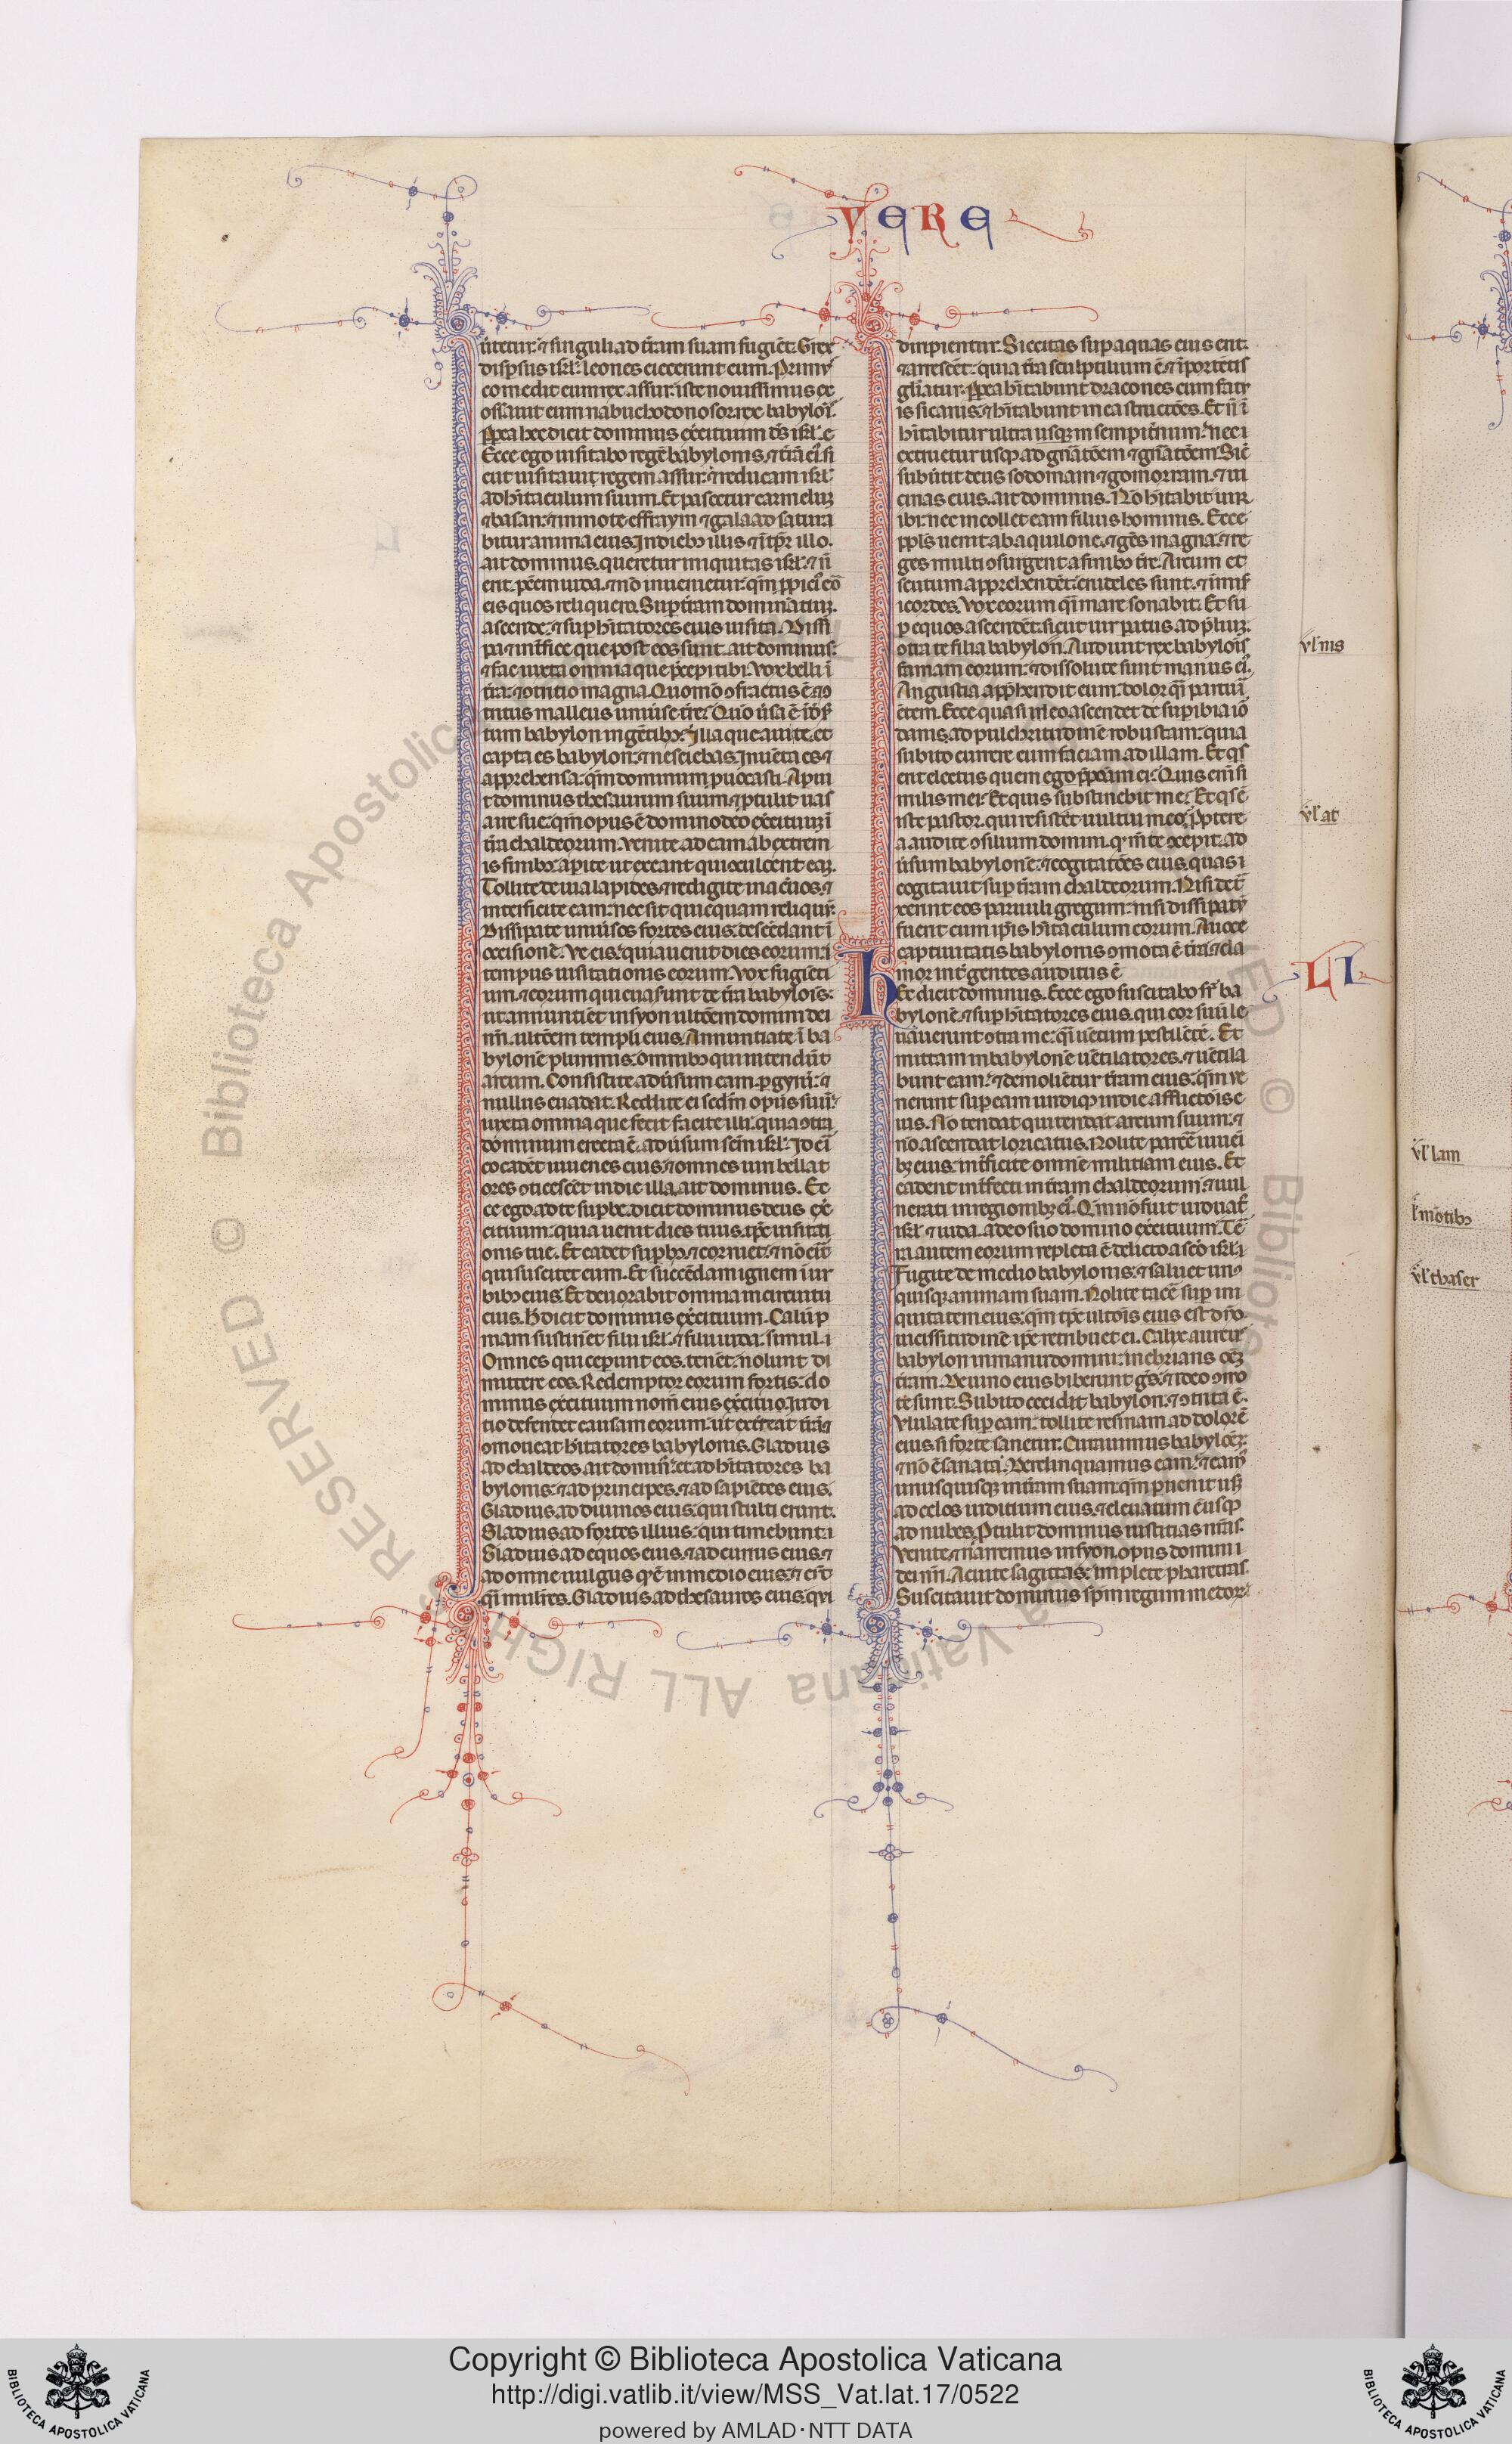 YERE
ũtetur: ⁊ singuli ad trãm suam fugiẽt. Grex
dispsus isrl̃: leones eiecerunt eum. Primꝰ
comedit eum rex assur: iste nouissimus ex
ossauit eum nabuchodonosor rex babyloĩ.
Ppea hec dicit dominus exẽcituum dẽs isrl̃. e
Ecce ego uisitabo regẽ babylonis, ⁊ trã eĩ: si
cut uisitaui regem assur: ⁊ reducam isrl̃
ad hĩtaculum suum. Et pascetur carmeluꝫ
⁊ basan: ⁊ in mõte effraym ⁊ galaad satura
bitur anima eius. In diebꝫ illis ⁊ ĩ tpr̃e illo.
ait dominus. queretur iniquitas isrl̃: ⁊ ñ
erit. pc̃cm iuda. ⁊ nõ inuenietur. qm̃ ppiciꝰ ero
eis quos reliquero. Sup trãm dominatiuꝫ.
ascende: ⁊ sup hĩtatores eius uisita. Dissi
pa ⁊ int̃fice que post eos sunt. ait dominus:
⁊ fac iuxta omnia que p̃cepi tibi. Vox belli ĩ
trã: ⁊ ꝯtritio magna. Quomõ ꝯfractus ẽ ⁊ ꝯ
tritus malleus uniũse tr̃e? Quõ ũsa ẽ ĩ des̃
tum babylon in gẽtibꝫ? Illaqueaui te. et
capta es babylon: ⁊ nesciebas. Inuẽta es ⁊
apprehensa: qm̃ dominum puocasti. Apui
t dominus thesaurum suum: ⁊ ptulit uas
a ire sue: qm̃ opus ẽ domino deo exẽcituuꝫ ĩ
trã chaldeorum. Venite ad eam ab extrem
is finibꝫ: apite ut exeant qui ꝯculcent eaꝫ.
Tollite de uia lapides. ⁊ redigite in acẽuos. ⁊
interficite eam: nec sit quicquam reliqui.
Dissipate uniũsos fortes eius: descẽdant ĩ
occisionẽ. Ve eis: quia uenit dies eorum: ⁊
tempus uisitationis eorum. Vox fugiẽti
um. ⁊ eorum qui euaserunt de trã babyloĩs:
ut annuntiẽt in syon ultõem domini dei
nr̃i. ultõem templi eius. Annuntiate ĩ ba
bylonẽ plurimis: omnibꝫ qui intendũt
arcum. Consistite aduersum eam p gyrũ: ⁊
nullus euadat. Reddite ei scdm̃ opus suũ:
iuxta omnia que fecit facite illi: quia ꝯtra
dominum erecta ẽ. ad ũsum scm̃ isrl̃. Idci
co cadẽt iuuenes eius: ⁊ omnes uiri bellat
ores ꝯticescẽt in die illa. ait dominus. Ec
ce ego ad te supbe. dicit dominus deus exẽ
cituum: quia uenit dies tuus. tps̃ uisitati
onis tue. Et cadet supbꝰ. ⁊ corruet: ⁊ nõ erit
qui suscitet eum. Et succẽdam ignem ĩ ur
bibꝫ eius. Et deuorabit omnia in circuitu
eius. H dicit dominus exẽcituum. Caliũp
niam sustinẽt filii isrl̃. ⁊ filii iuda. simul. ⁊
Omnes qui ceperunt eos. tenẽt: nolunt di
mittere eos. Redemptor eorum fortis. do
minus exẽcituum nom̃ eius exẽcituũ. Iudi
tio defendet causam eorum. ut extr̃eat trã: ⁊
ꝯmoueat hĩtatores babylonis. Gladius
ad chaldeos ait dominꝰ: et ad hĩtatores ba
bylonis: ⁊ ad principes. ⁊ ad sapiẽtes eius.
Gladius ad diuinos eius. qui stulti erunt.
Gladius ad fortes illius: qui timebunt. ⁊
Gladius ad equos eius. ⁊ ad currus eius. ⁊
ad omne uulgus qd̃ ẽ in medio eius: ⁊ erũt
qĩ mulir̃es. Gladius ad thesauros eius: qui
diripientur. Siccitas sup aquas eius erit.
⁊ arescẽt: quia trã sculptilium ẽ. ⁊ ĩ portẽtis
glr̃iatur. Ppea hĩtabunt dracones cum faũ
is ficariis: ⁊ hĩtabunt in ea strutiões. Et ñ ĩ
hĩtabitur ultra usqꝫ in sempit̃num: nec ⁊
extruetur usqꝫ ad gñatõem ⁊ gñatõem. Sic̃
subũtit deus sodomam ⁊ gomorram. ⁊ ui
cinas eius. ait dominus. Nõ hĩtabit uir
ibi: nec incollet eam filius hominis. Ecce
ppls̃ uenit ab aquilone. ⁊ gẽs magna: ⁊ re
ges multi ꝯsurgent a finibꝫ tr̃e. Arcum et
scutum apprehendẽt: crudeles sunt. ⁊ ĩmis
icordes. Vox eorum qĩ mare sonabit. Et su
p equos ascendẽt: sicut uir patus. ad p̃liuꝫ.
ꝯtra te filia babylon. Audiuit rex babyloĩs
famam eorum: ⁊ dissolute sunt manus eĩ.
Angustia app̃hendit eum: dolor qĩ parturi
ẽtem. Ecce quasi leo ascendet de supbia io
danis. ad pulchritudinẽ robustam: quia
subito currere eum faciam ad illam. Et qs̃
erit electus quem ego p̃pũam ei? Quis enĩ si
milis mei? Et quis substinebit me? Et qs ẽ
iste pastor. qui resistẽt uultui meo? ppterea
a audite ꝯsilium domini. qd̃ m̃te ꝯcepit. ad
ũsum babylonẽ. ⁊ cogitatões eius. quas ĩ
cogitauit sup trãm chaldeorum. Nisi det̃
xerint eos paruuli gregum: nisi dissipatũ
fuerit cum ip̃is hĩtaculum eorum. A uoce
captiuitatis babylonis ꝯmota ẽ trã: ⁊ cla
mor int̃ gentes auditus ẽ
LI
Hec dicit dominus. Ecce ego suscitabo sr̃ ba
bylonẽ. ⁊ sup hĩtatores eius. qui cor suũ le
uauerunt ꝯtra me: qĩ uẽtum pestilẽtẽ. Et
mittam in babylonẽ uẽtilatores. ⁊ uẽtila
bunt eam: ⁊ demoliẽtur trãm eius: qm̃ ue
nerunt sup eam undiqꝫ in die afflictõis e
ius. Nõ tendat qui tendat arcum suum: ⁊
nõ ascendat loricatus. Nolite parcẽ iuuẽi
bꝫ eius. int̃ficite omnẽ militiam eius. Et
cadent int̃fecti in trãm chaldeorum: ⁊ uul
nerati in regionibꝫ eĩ. Qm̃ nõ fuit uiduatꝰ
isrl̃ ⁊ iuda. a deo suo domino exẽcituum. Tẽ
ra autem eorum repleta ẽ delicto a scõ isrl̃. ⁊
Fugite de medio babylonis: ⁊ saluet unꝰ
quisqꝫ animam suam. Nolite tacẽ sup ini
quitatem eius: qm̃ tps̃ ultõis eius est dño.
uicissitudinẽ ipẽ retribuet ei. Calix aureꝰ
babylon in manu domini: inebrians oẽꝫ
trãm. De uino eius biberunt gẽs: ⁊ ideo ꝯmo
te sunt. Subito cecidit babylon: ⁊ ꝯtrita ẽ.
Vlulate sup eam: tollite resinam ad dolorẽ
eius. si forte sanetur. Curauimus babylõeꝫ:
⁊ nõ ẽ sanata. Derelinquamus eam: ⁊ eamꝰ
unusquisqꝫ in trãm suam: qm̃ puenit usꝫ
ad celos iuditium eius. ⁊ eleuatum ẽ usqꝫ
ad nubes. Ptulit dominus iustitias nr̃as.
venite ⁊ narremus in syon. opus domini
dei nr̃i. Acuite sagittas: implete pharetras.
Suscitauit dominus spm̃ regum medorꝝ:
vl' ms
vl' at
vl' lam
l' mõtibꝫ
vl' thaser
Copyright © Biblioteca Apostolica Vaticana
http://digi.vatlib.it/view/MSS_Vat.lat.17/0522
powered by AMLAD·NTT DATA
BIBLIOTECA APOSTOLICA VATICANA
BIBLIOTECA APOSTOLICA VATICANA
© Biblioteca Apostolica Vaticana ALL RIGHTS RESERVED